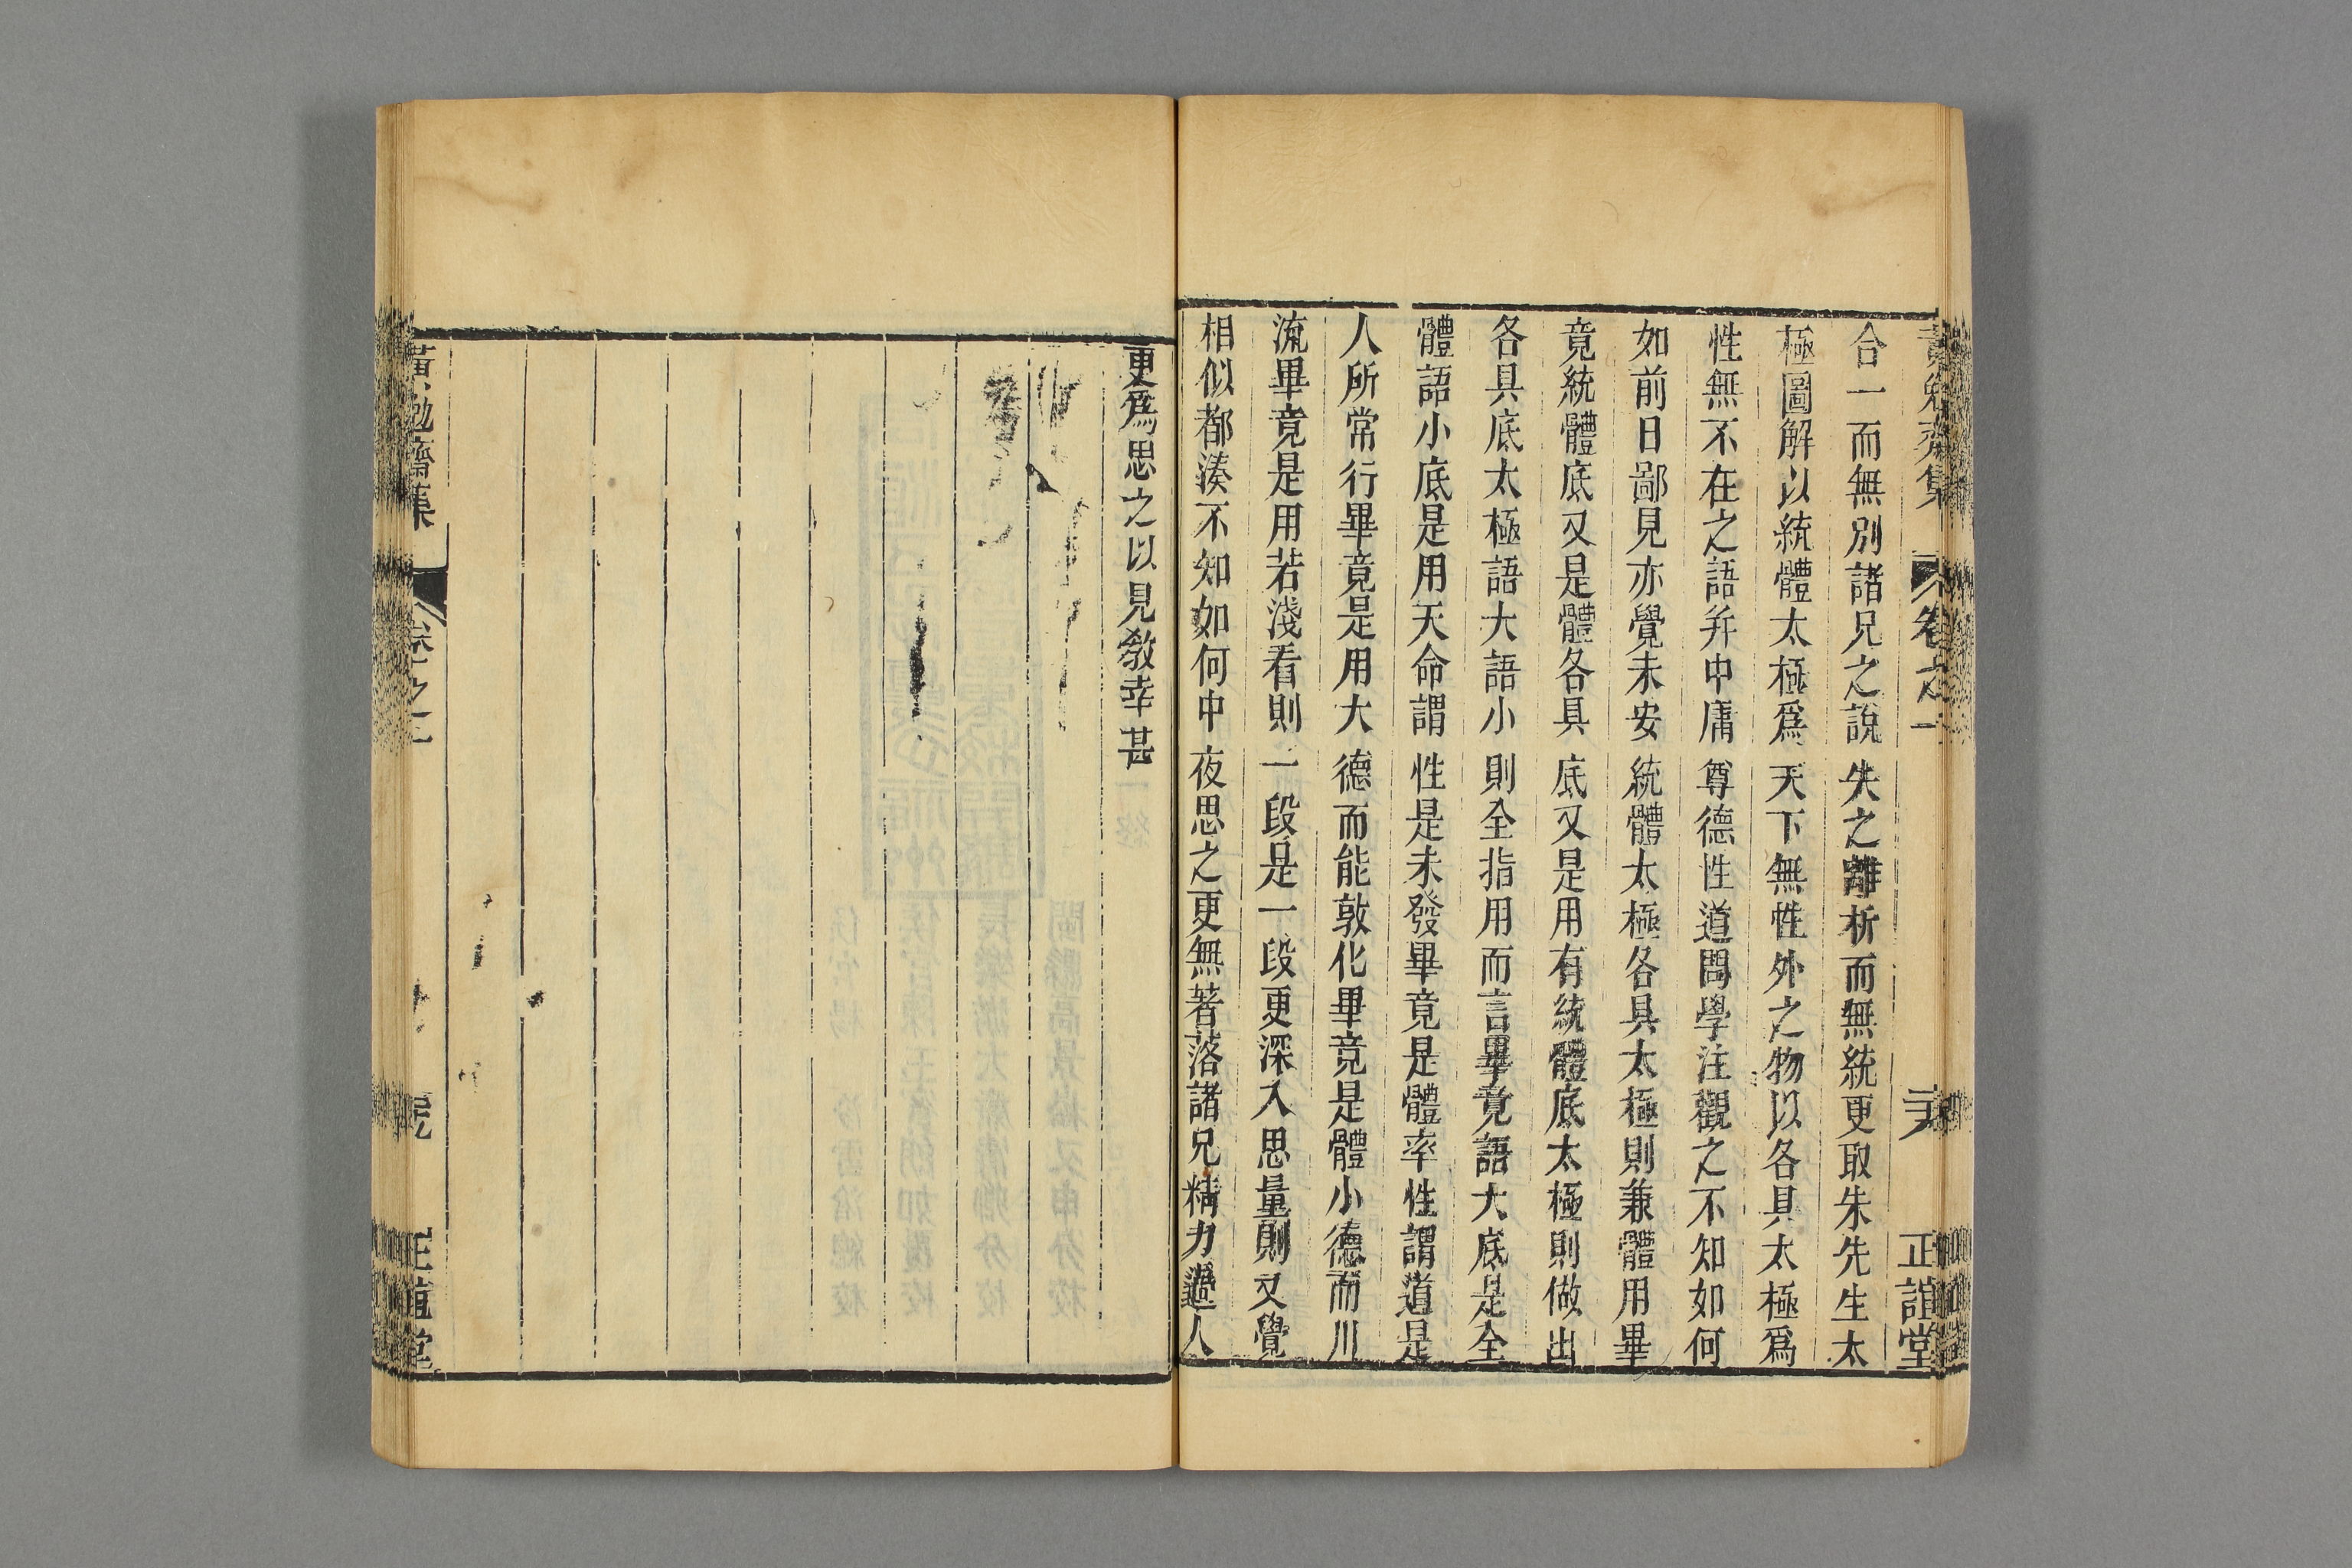 黃勉齋集 卷之一 正誼堂
合一而無別諸兄之說失之離析而無統更取朱先生太
極圖解以統體太極爲天下無性外之物以各具太極爲
性無不在之語并中庸尊德性道問學注觀之不知如何
如前日鄙見亦覺未安統體太極各具太極則兼體用畢
竟統體底又是體各具底又是用有統體底太極則做出
各具底太極語大語小則全指用而言畢竟語大底是全
體語小底是用天命謂性是未發畢竟是體率性謂道是
人所常行畢竟是用大德而能敦化畢竟是體小德而川
流畢竟是用若淺看則一段是一段更深入思量則又覺
相似都湊不知如何中夜思之更無著落諸兄精力過人
更爲思之以見敎幸甚
黃勉齋集 卷之一 正誼堂